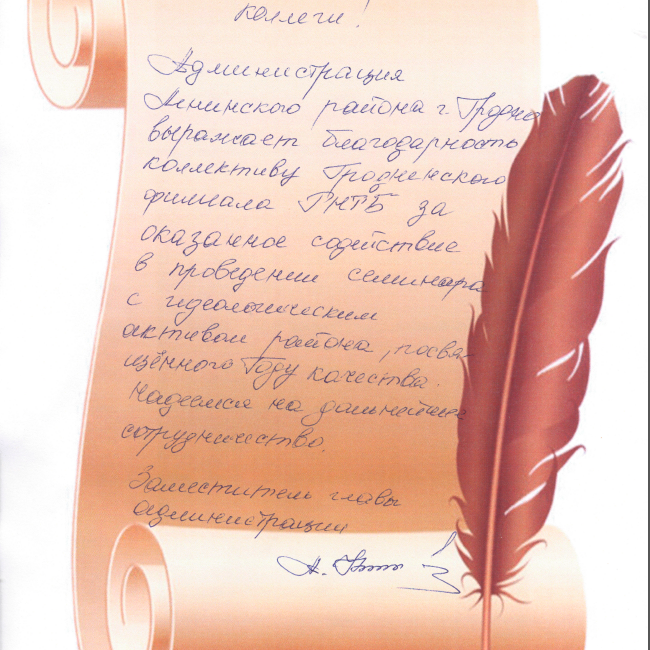 коллеги!
Администрация
Ленинского района г. Гродно
выражает благодарность
коллективу Гродненского
филиала РНТБ за
оказанное содействие
в проведении семинара
с идеологическим
активом района, посвя-
щённого Году качества.
Надеемся на дальнейшее
сотрудничество.
Заместитель главы
администрации
А.